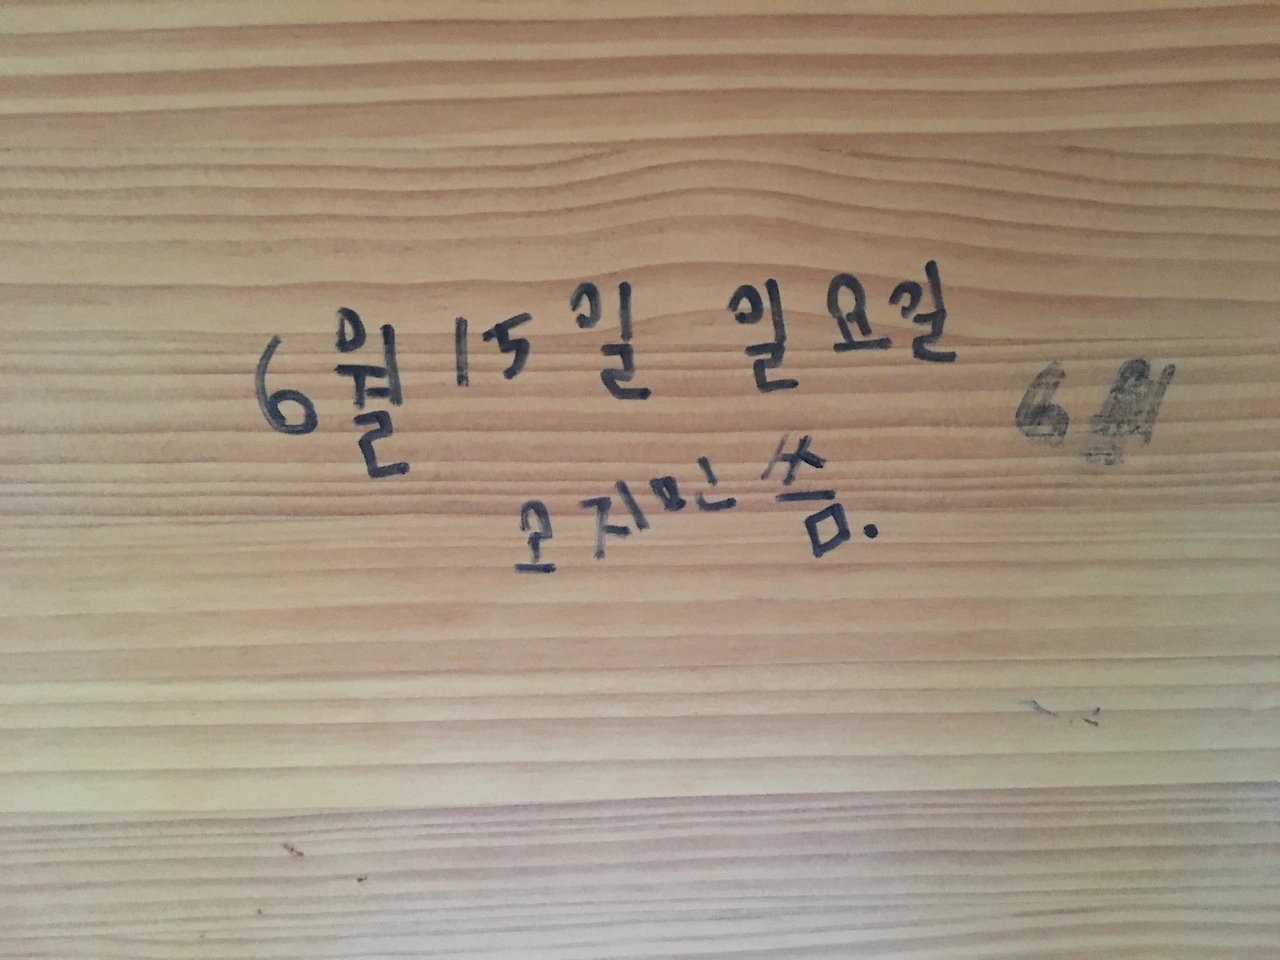 6월 15일 일요일
6월
오지민 씀.